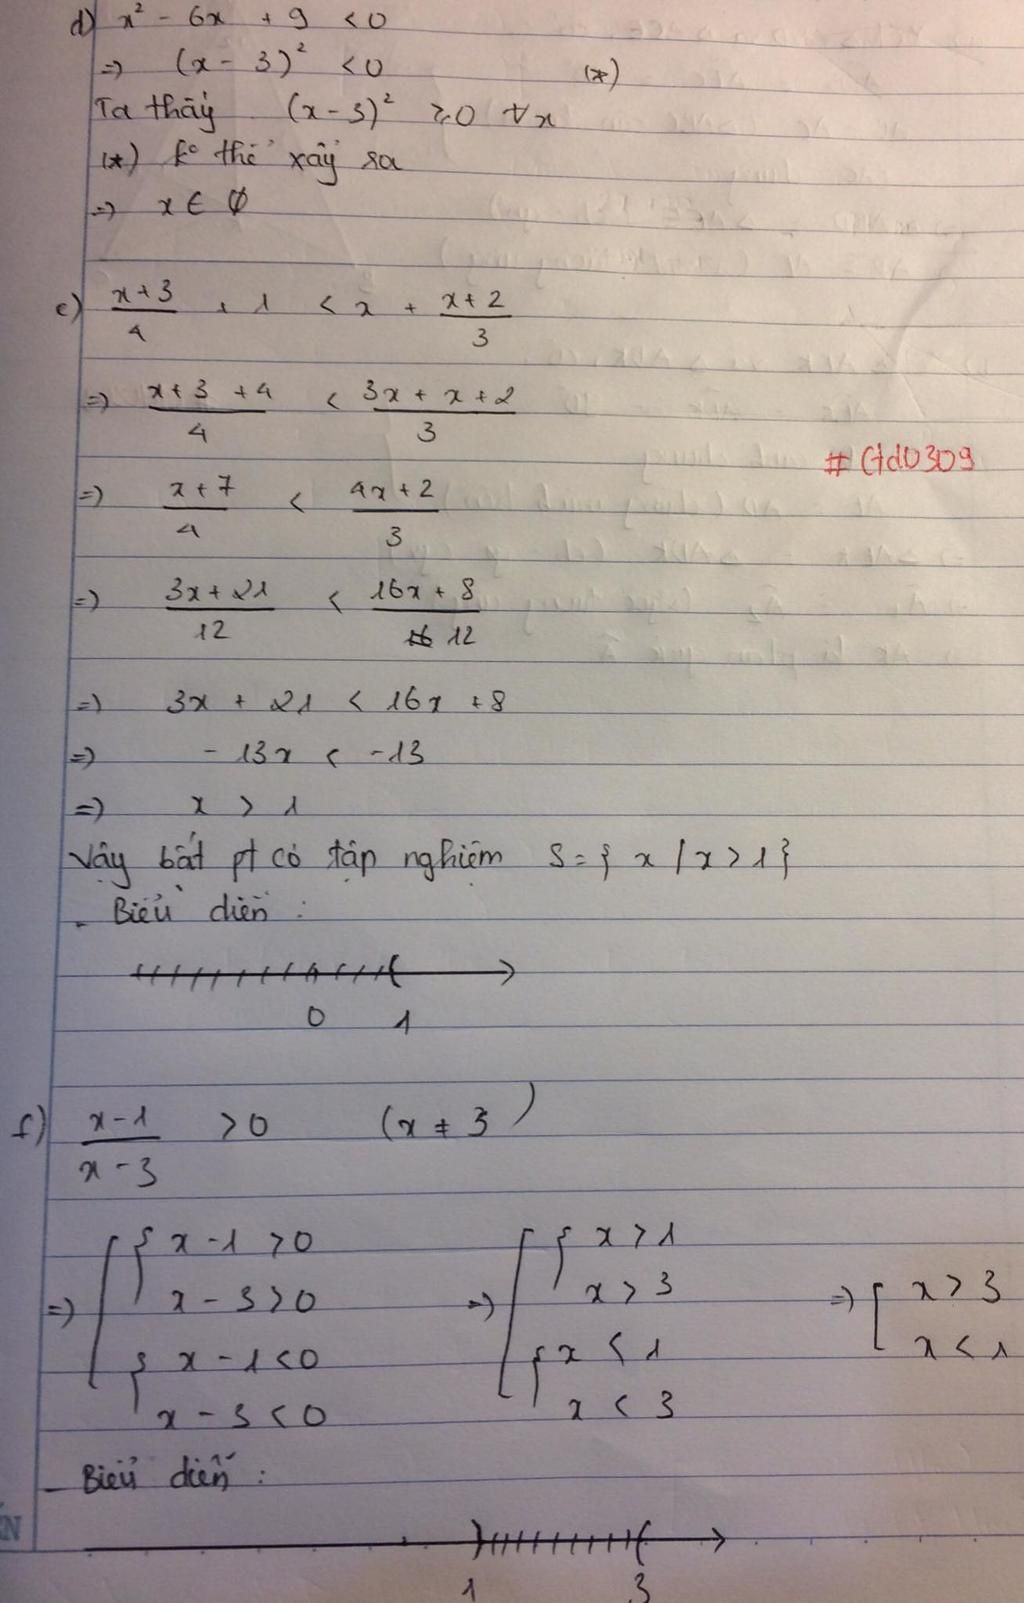 d) x² - 6x + 9 < 0
=> (x - 3)² < 0 (*)
Ta thấy (x - 3)² ≥ 0 ∀x
(*) k° thể xảy ra
=> x ∈ ∅
e) \frac{x+3}{4} + 1 < x + \frac{x+2}{3}
=> \frac{x+3+4}{4} < \frac{3x+x+2}{3}
# Gtd0309
=> \frac{x+7}{4} < \frac{4x+2}{3}
=> \frac{3x+21}{12} < \frac{16x+8}{12}
=> 3x + 21 < 16x + 8
=> -13x < -13
=> x > 1
Vậy bất pt có tập nghiệm S = { x / x > 1 }
- Biểu diễn :
0 1
f) \frac{x-1}{x-3} > 0 (x ≠ 3)
=> [ { x - 1 > 0 => [ { x > 1
x - 3 > 0 x > 3 => [ x > 3
{ x - 1 < 0 { x < 1 x < 1
x - 3 < 0 x < 3
- Biểu diễn :
1 3